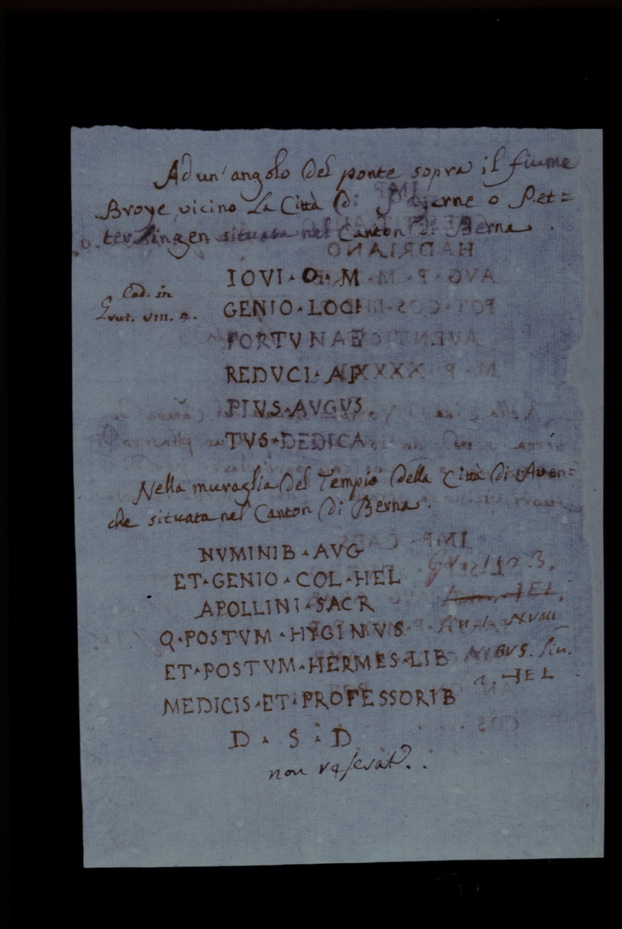 Ad un' angolo del ponte sopra il fiume
Broye, vicino la Città di Pajerne o Pet=
terlingen situata nel Canton di Berna.
IOVI · O · M
GENIO · LOCI
FORTVNAE
REDVCI · AP
PIVS · AVGVS
TVS · DEDICA
Cad. in
Grut. VIII. 9.
Nella muraglia del Tempio della Città di Aven=
che situata nel Canton di Berna.
NVMINIB · AVG
ET · GENIO · COL · HEL
APOLLINI · SACR
Q · POSTVM · HYGINVS
ET · POSTVM · HERMES · LIB
MEDICIS · ET · PROFESSORIB
D · S · D
3.
HEL.
BVS. lin.
HEL
non